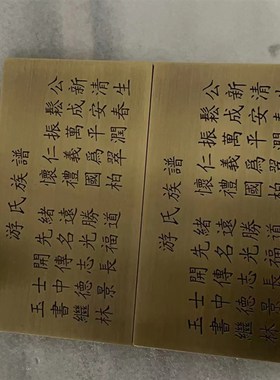 游氏族譜
玉士開先緒 懷仁振鬆公
書中傳名遠 禮義萬成新
繼德志光勝 國爲平安清
林景長福道 柏翠潤春生
游氏族譜
玉士開先緒 懷仁振鬆公
書中傳名遠 禮義萬成新
繼德志光勝 國爲平安清
林景長福道 柏翠潤春生